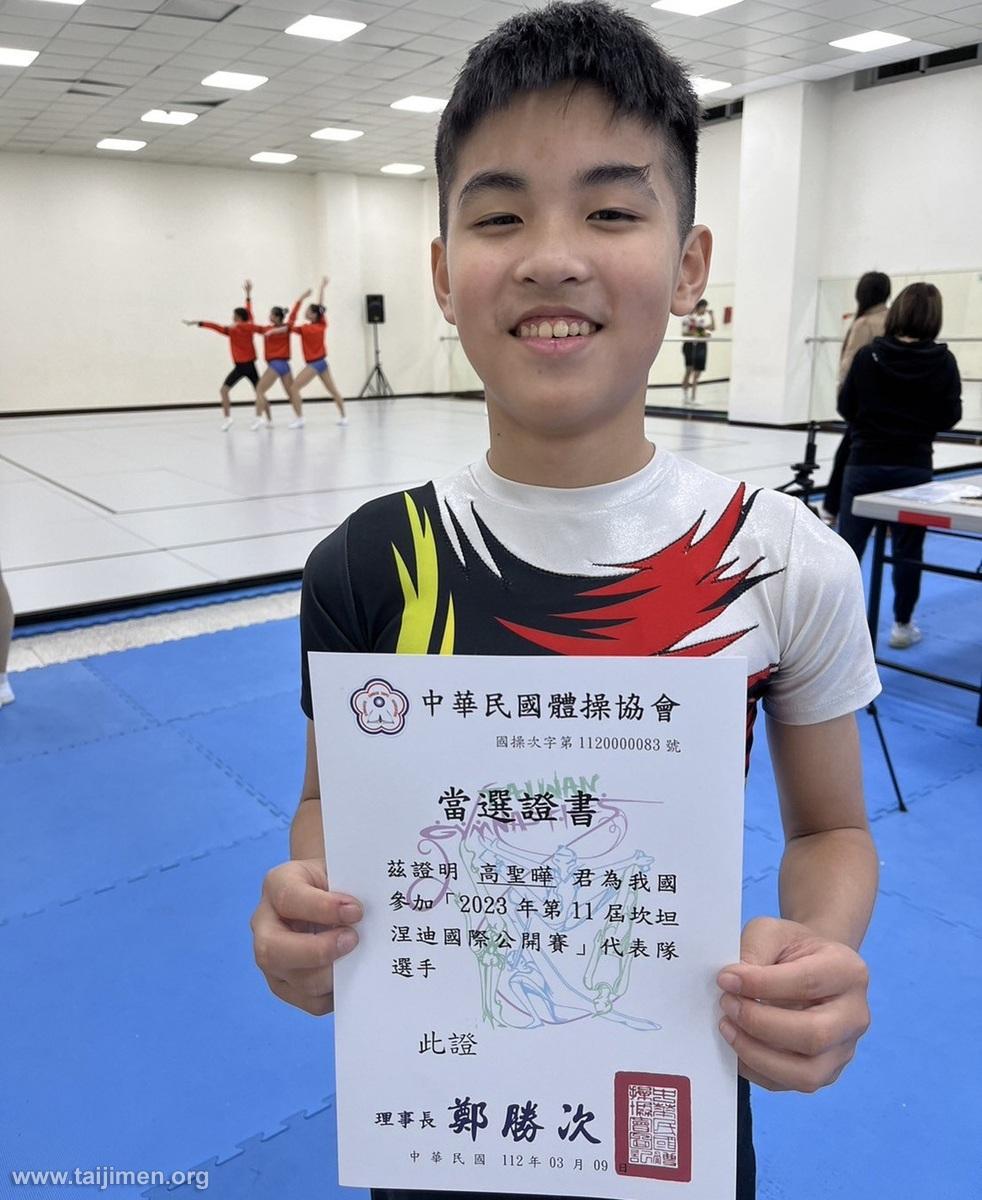 中華民國體操協會
國操次字第 1120000083 號
TAIWAN
當選證書
GYMNASTICS
茲證明 高聖曄 君為我國
參加「2023 年第 11 屆坎坦
涅迪國際公開賽」代表隊
選手
此證
理事長 鄭勝次
中華民國 112 年 03 月 09 日
www.taijimen.org